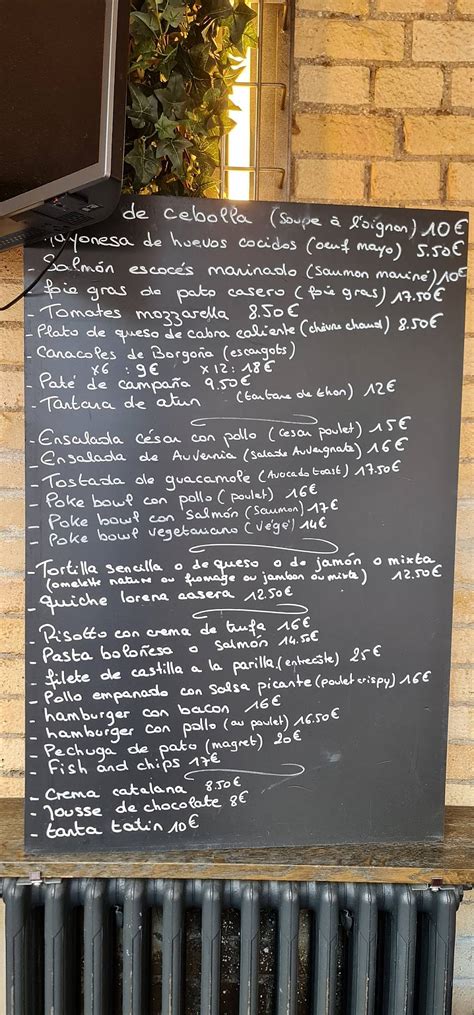 de cebolla (Soupe à l'oignon) 10€
de huevos cocidos (oeuf mayo) 5.50€
- Salmón escocés marinado (saumon mariné) 10€
- foie gras de pato casero (foie gras) 17.50€
- Tomates mozzarella 8.50€
- Plato de queso de cabra caliente (chèvre chaud) 8.50€
- Canacoles de Borgoña (escargots)
x6 : 9€ x12 : 18€
- Paté de campaña 9.50€
- Tantana de atun (tartare de thon) 12€
- Ensalada césar con pollo (César poulet) 15€
- Ensalada de Auvernia (Salade Auvergnate) 16€
- Tostada de guacamole (Avocado toast) 17.50€
- Poke bowl con pollo (poulet) 16€
- Poke bowl con salmón (Saumon) 17€
- Poke bowl vegetariano (végé) 14€
- Tortilla sencilla o de queso o de jamón o mixta
(omelette nature ou fromage ou jambon ou mixte) 12.50€
- quiche lorena casera 12.50€
- Risotto con crema de trufa 16€
- Pasta boloñesa o salmón 14.50€
- filete de castilla a la parilla (entrecôte) 25€
- Pollo empanado con salsa picante (poulet crispy) 16€
- hamburger con bacon 16€
- hamburger con pollo (au poulet) 16.50€
- Pechuga de pato (magret) 20€
- Fish and chips 17€
- Crema catalana 8.50€
- Mousse de chocolate 8€
- tanta tatin 10€